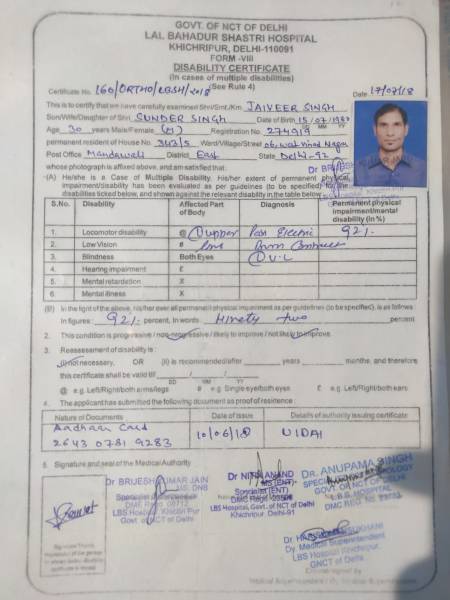 GOVT. OF NCT OF DELHI
LAL BAHADUR SHASTRI HOSPITAL
KHICHRIPUR, DELHI-110091
FORM -VIII
DISABILITY CERTIFICATE
(In cases of multiple disabilities)
(See Rule 4)
Certificate No. 160/ORTHO/LBSH/2018 Date 17/07/18
This is to certify that we have carefully examined Shri/Smt./Km. JAIVEER SINGH
Son/Wife/Daughter of Shri SUNDER SINGH Date of Birth 15/07/1988
Age 30 years Male/Female (M) Registration No. 274919
permanent resident of House No. 343/5 Ward/Village/Street
Post Office Mandawali District East State Delhi-92
whose photograph is affixed above, and am satisfied that :
(A) He/she is a Case of Multiple Disability. His/her extent of permanent physical
impairment/disability has been evaluated as per guidelines (to be specified) for the
disabilities ticked below, and shown against the relevant disability in the table below :
S.No. Disability Affected Part of Body Diagnosis Permanent physical impairment/mental disability (In %)
1. Locomotor disability @ Post Electric 92%
2. Low Vision # Burn
3. Blindness Both Eyes
4. Hearing impairment £
5. Mental retardation X
6. Mental illness X
(B) In the light of the above, his/her over all permanent physical impairment as per guidelines (to be specified), is as follows
In figures : 92% percent, In words Ninety two percent.
2. This condition is progressive / non-progressive / likely to improve / not likely to improve.
3. Reassessment of disability is :
(i) not necessary, OR (ii) is recommended/after years months, and therefore
this certificate shall be valid till
DD MM YY
@ e.g. Left/Right/both arms/legs # e.g. Single eye/both eyes £ e.g. Left/Right/both ears
4. The applicant has submitted the following document as proof of residence :
Nature of Documents Date of Issue Details of authority issuing certificate
Aadhaar Card 10/06/18 UIDAI
2643 0781 9283
5. Signature and seal of the Medical Authority
Dr BRIJESH KUMAR JAIN
Govt of NCT of Delhi
Specialist (ENT)
LBS Hospital, Govt. of NCT of Delhi
Khichripur Delhi-91
DR. ANUPAMA SINGH
GOVT. OF NCT OF DELHI
L.B.S. HOSPITAL
Dy. Medical Superintendent
LBS Hospital Khichripur,
GNCT of Delhi